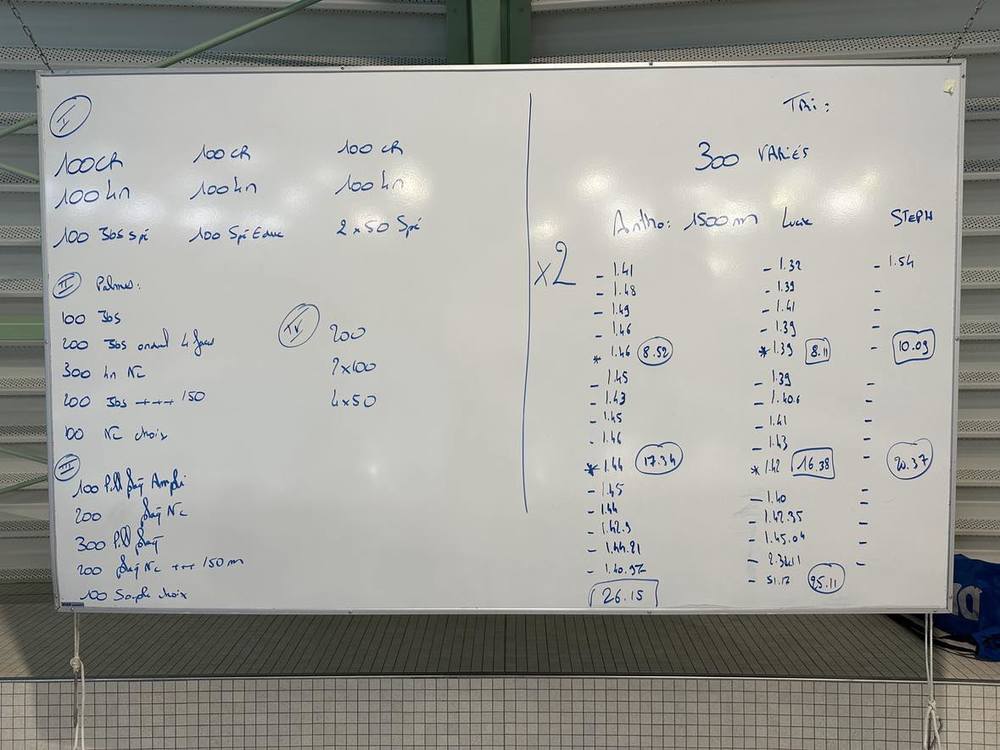 I
100 CR 100 CR 100 CR
100 4n 100 4n 100 4n
100 Jbs spé 100 Spé Educ 2 x 50 Spé
II Palmes:
100 Jbs
200 Jbs 4
300 4n NC
200 Jbs +++ 150
100 NC choix
IV 200
2x100
4x50
III
100 Pull plaq Ampli
200 plaq NC
300 Pull plaq
200 plaq NC +++ 150 m
100 Souple choix
TRi:
300 VARIÉS
x2
Antho: 1500 m
- 1.41
- 1.48
- 1.49
- 1.46
* 1.46 8.52
- 1.45
- 1.43
- 1.45
- 1.46
* 1.44 17.34
- 1.45
- 1.44
- 1.42.9
- 1.44.81
- 1.40.97
26.15
Luca
- 1.32
- 1.39
- 1.41
- 1.39
* 1.39 8.11
- 1.39
- 1.40.6
- 1.41
- 1.43
* 1.42 16.38
- 1.40
- 1.42.35
- 1.45.04
- 51.13 25.11
STEPH
- 1.54
-
-
-
- 10.09
-
-
-
-
20.37
-
-
-
-